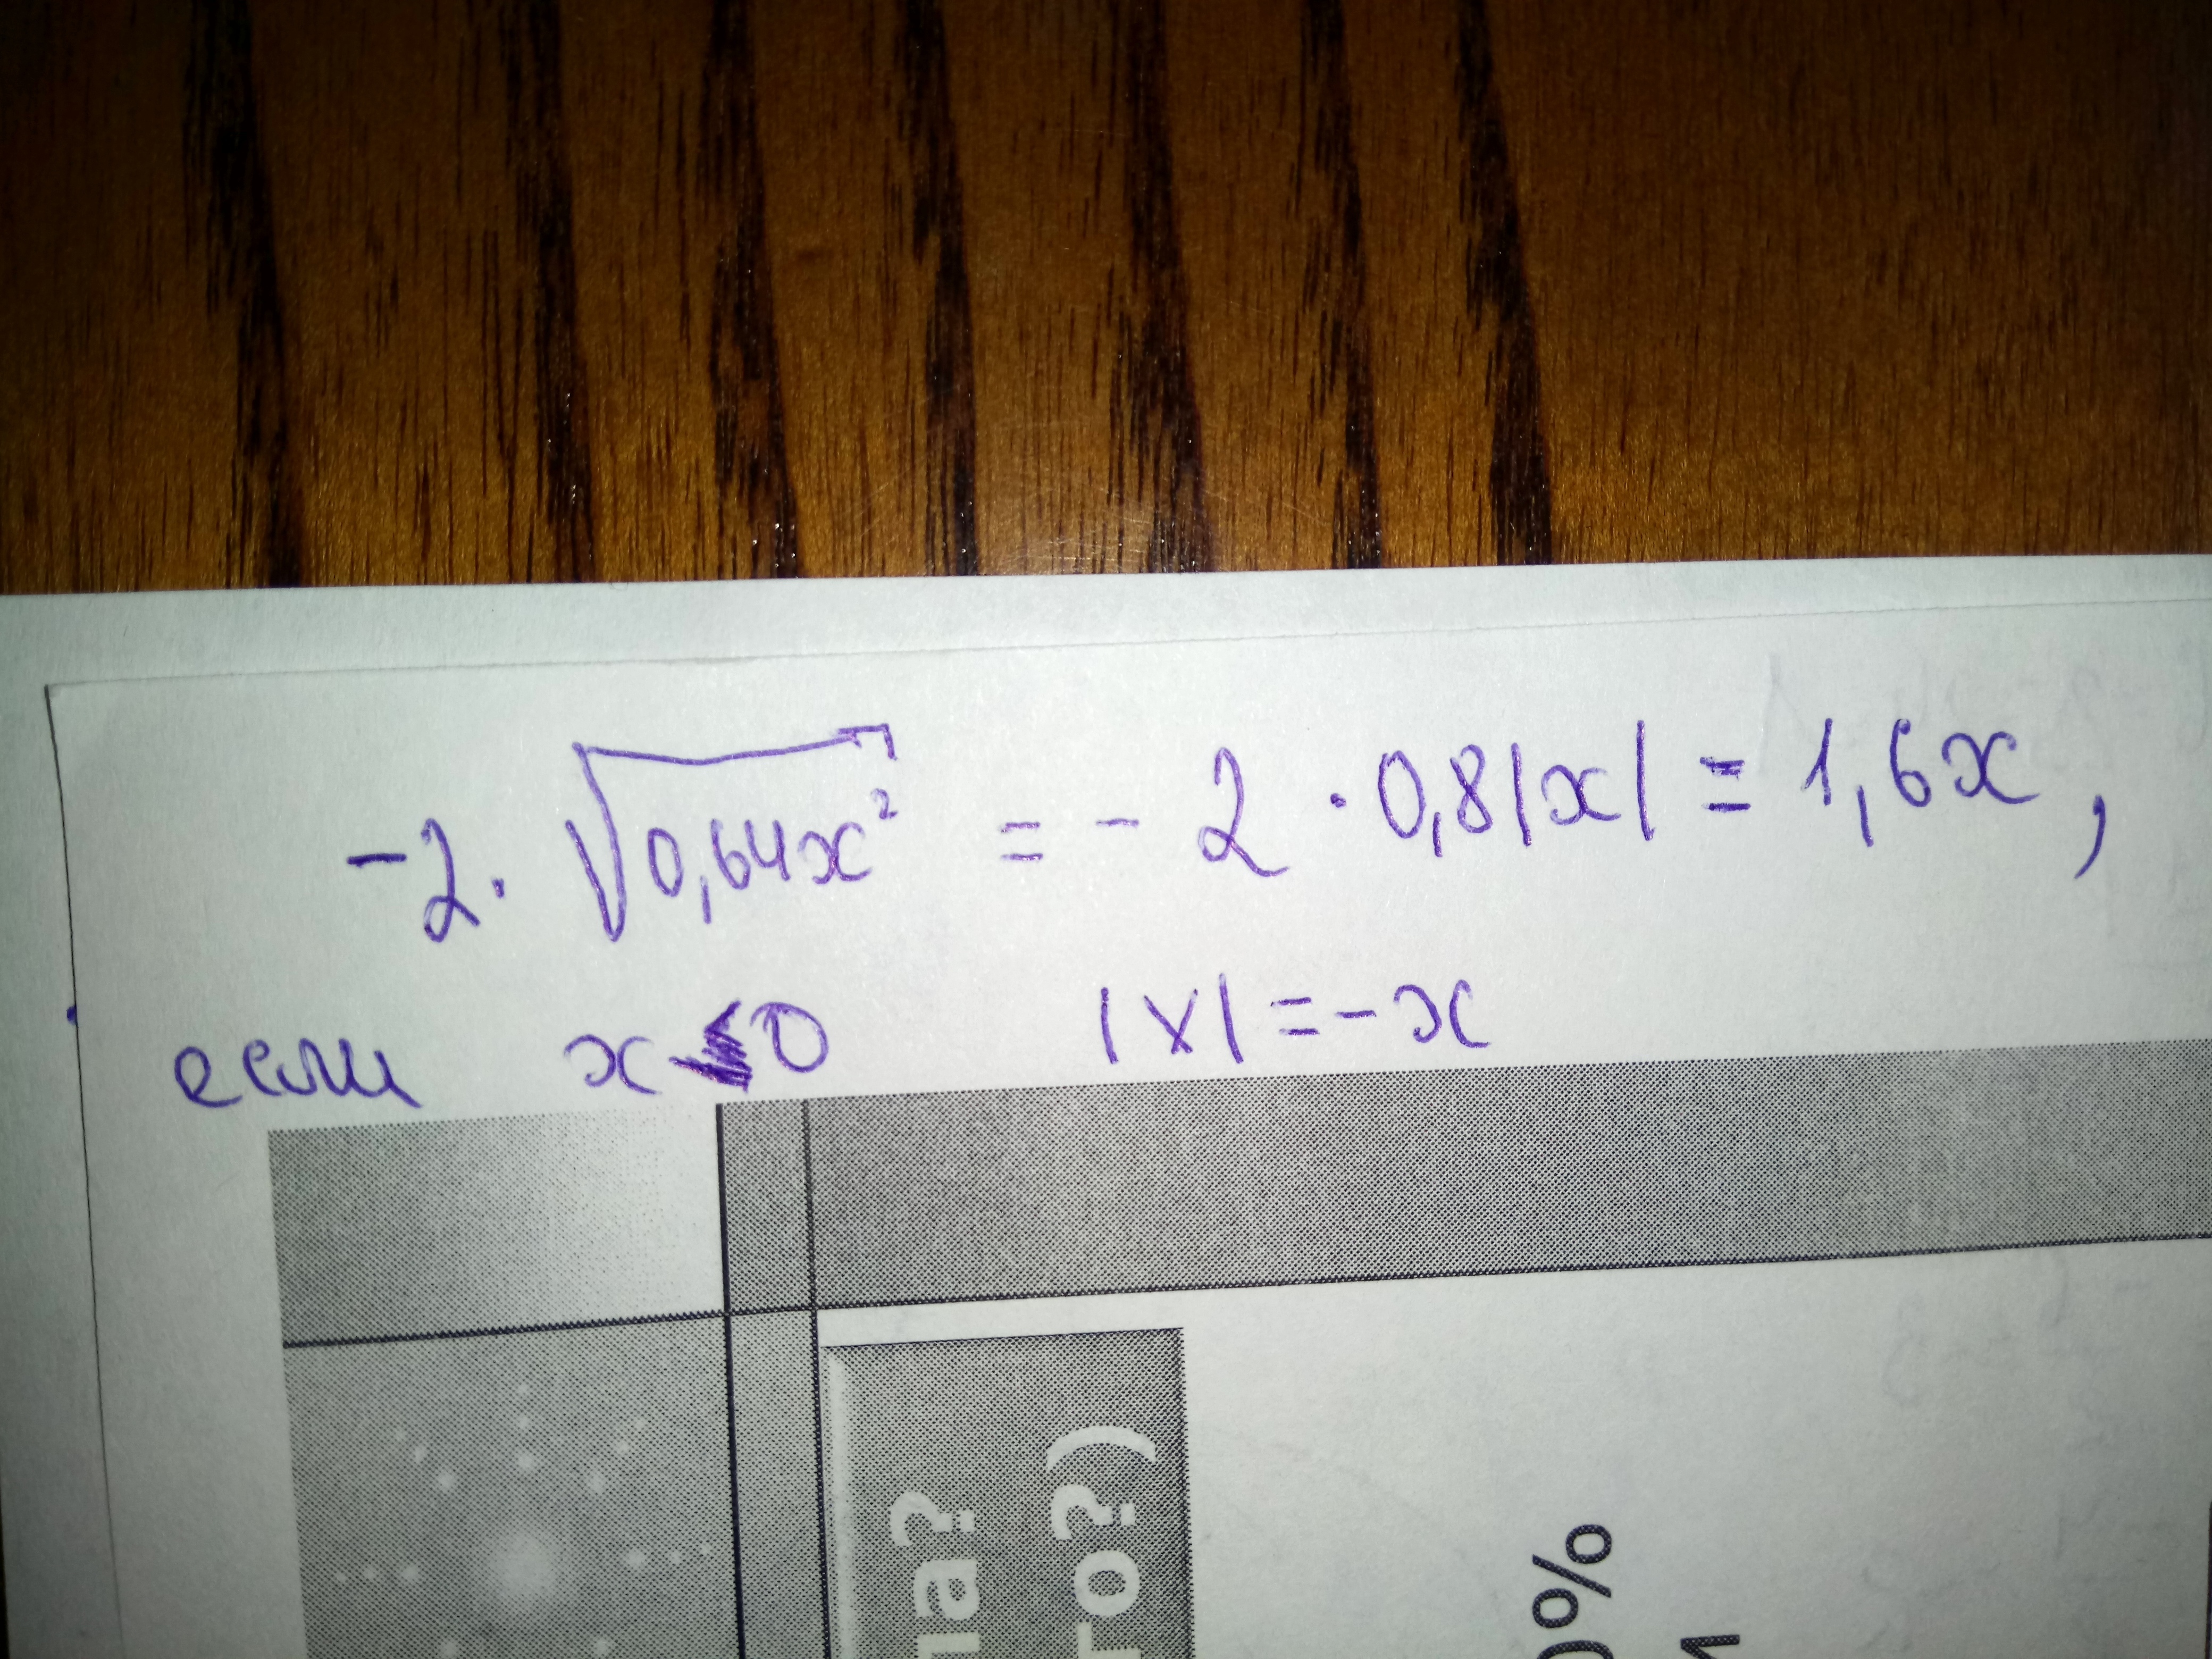 -2. √0,64x² = - 2 · 0,8|x| = 1,6x,
если x<0 |x| = -x
па?
го?)
0%
и